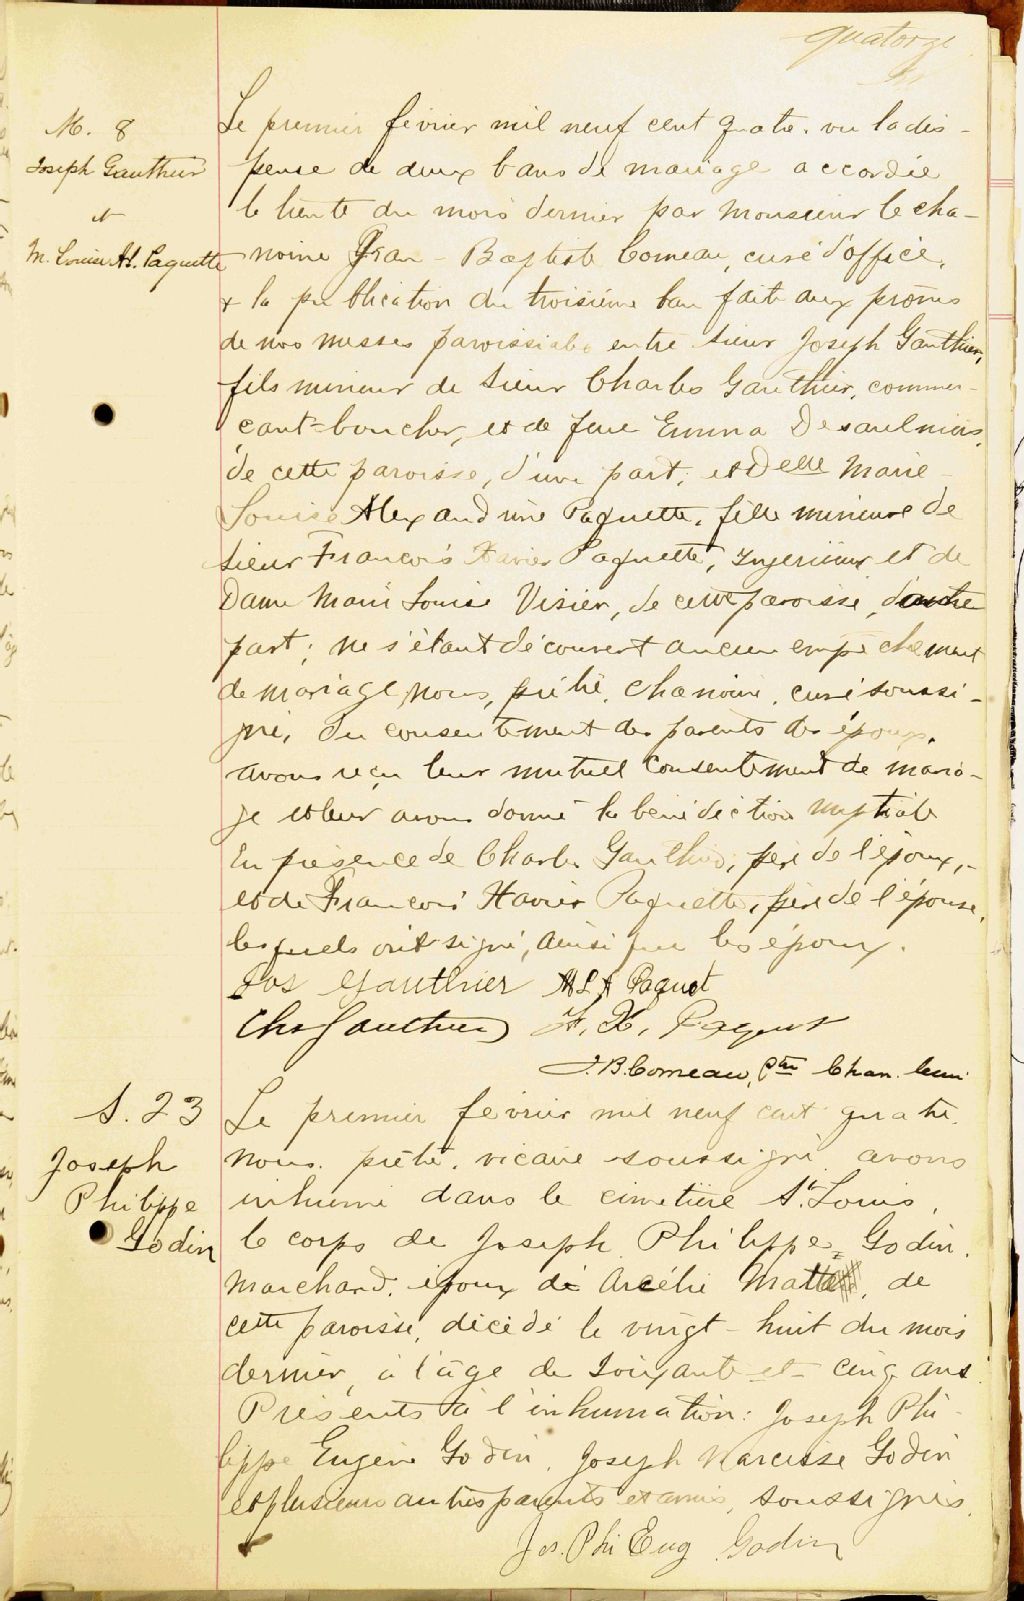 quatorze
M. 8
Joseph Gauthier
et
M. Louise Al. Paquette
Le premier février mil neuf cent quatre, vu la dis-
pense de deux bans de mariage accordée
le trente du mois dernier par Monsieur le cha-
noine Jean-Baptiste Comeau, curé d'office,
& la publication du troisième ban faite aux prônes
de nos messes paroissiales entre sieur Joseph Gauthier,
fils mineur de sieur Charles Gauthier, commer-
çant-boucher, et de feue Emma Desaulniers,
de cette paroisse, d'une part, et Delle Marie
Louise Alexandrine Paquette, fille mineure de
sieur François Xavier Paquette, Ingénieur et de
Dame Marie Louise Visier, de cette paroisse, d'autre
part; ne s'étant découvert aucun empêchement
de mariage, nous, prêtre, chanoine, curé soussi-
gné, du consentement des parents des époux,
avons reçu leur mutuel consentement de maria-
ge et leur avons donné la bénédiction nuptiale
En présence de Charles Gauthier, père de l'époux,-
et de François Xavier Paquette, père de l'épouse,
lesquels ont signé, ainsi que les époux.
Jos Gauthier M L A Paquet
Chs Gauthier F. X. Paquet
J. B. Comeau, Ptre Chan. Curé
S. 23
Joseph
Philippe
Godin
Le premier février mil neuf cent quatre,
nous, prêtre, vicaire soussigné avons
inhumé dans le cimetière St. Louis,
le corps de Joseph Philippe Godin,
marchand, époux de Arcélie Matte, de
cette paroisse, décédé le vingt-huit du mois
dernier, à l'âge de soixante et cinq ans.
Présents à l'inhumation: Joseph Phi-
lippe Eugène Godin, Joseph Narcisse Godin
et plusieurs autres parents et amis, soussignés.
Jos. Phi Eug Godin